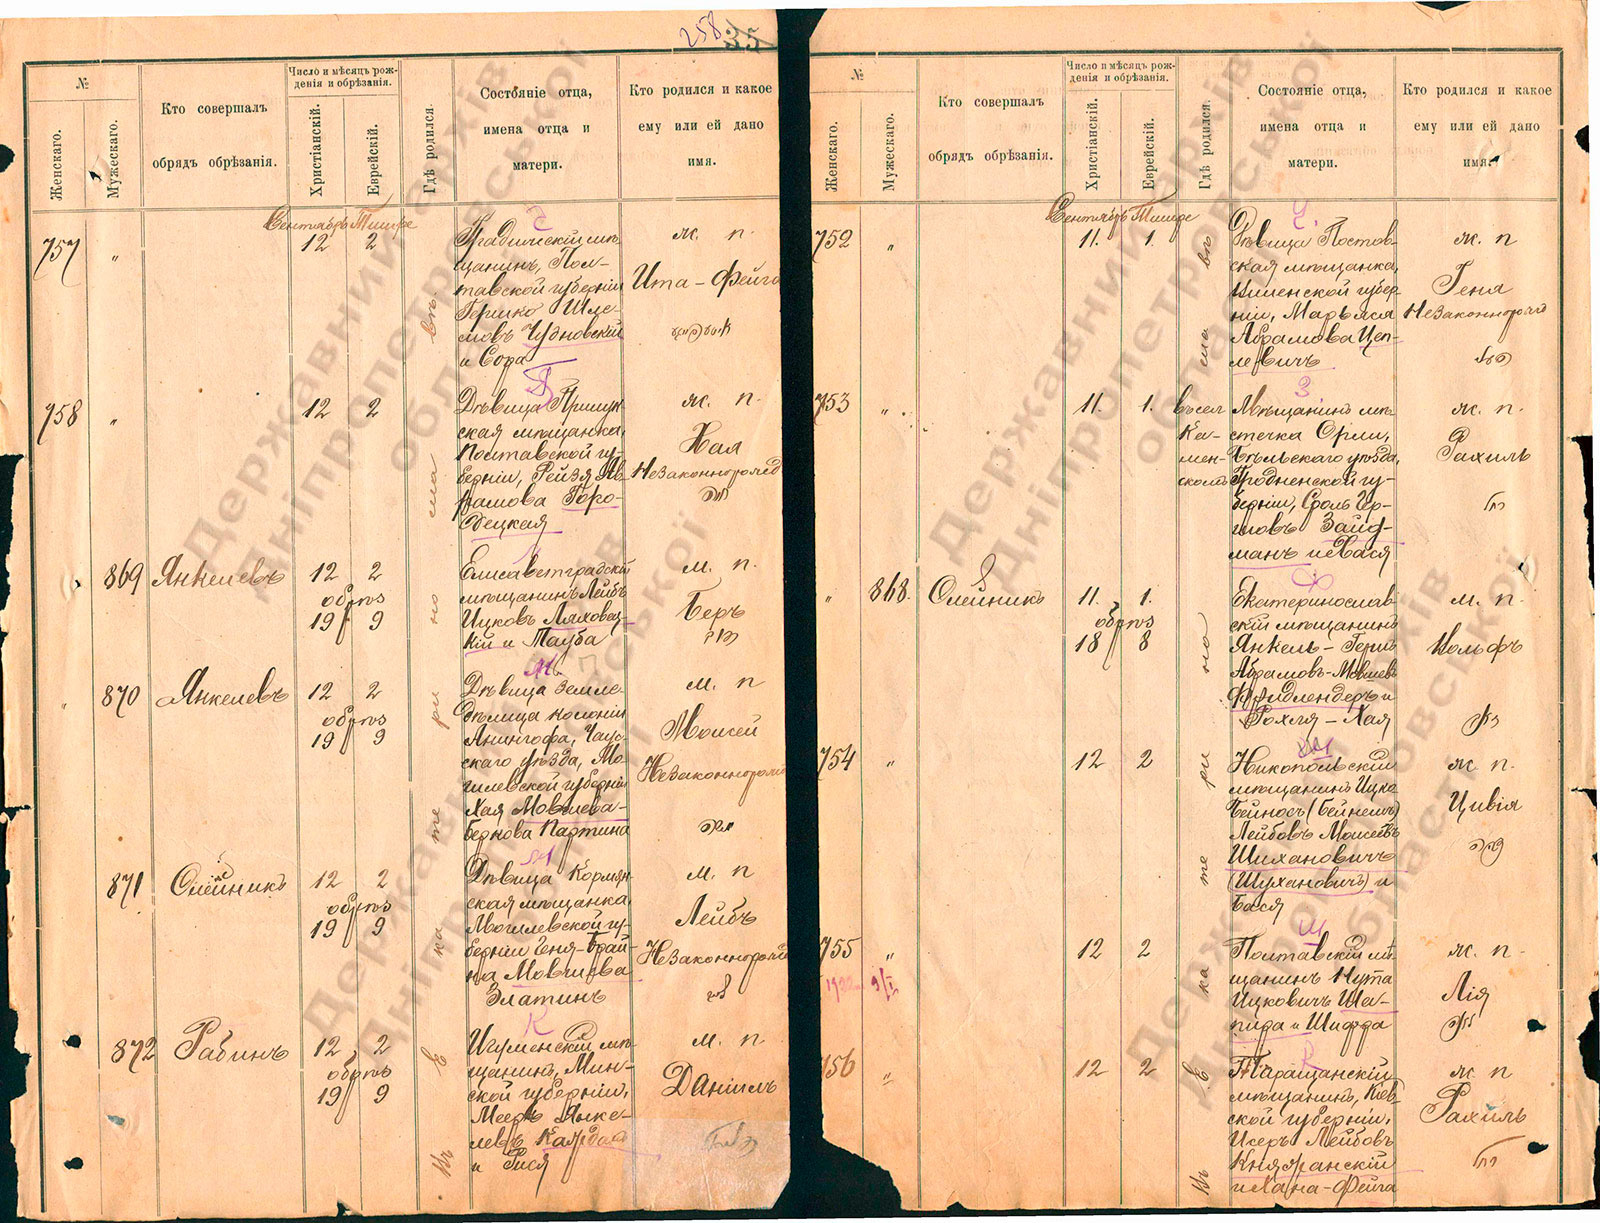 258 35
№
Женскаго.
Мужескаго.
Кто совершалъ
обрядъ обрѣзанія.
Число и мѣсяцъ рож-
денія и обрѣзанія.
Христіанскій.
Еврейскій.
Гдѣ родился.
Состояніе отца,
имена отца и
матери.
Кто родился и какое
ему или ей дано
имя.
Сентябрь Тишре
въ
но ма
ка те ри
Е
въ
757 „ 12 2
Градижскій мѣ-
щанинъ, Пол-
тавской губерніи
Гершко Шле-
мовъ Чудновскій
и Сора
ж. п.
Ита-Фейга
758 „ 12 2
Дѣвица Прилук-
ская мѣщанка,
Полтавской гу-
берніи, Рейзя Ав-
рамова Горо-
децкая
ж. п.
Хая
Незаконнорожд
869 Янкелевъ 12 2
обрѣз
19 9
Елисаветградскій
мѣщанинъ Лейбъ
Ицковъ Ляховец-
кій и Тауба
м. п.
Беръ
„ 870 Янкелевъ 12 2
обрѣз
19 9
Дѣвица Земле-
дѣлица колоніи
Анингофа, Чаус-
скаго уѣзда, Мо-
гилевской губерніи
Хая Мовшева-
беркова Партина
м. п
Моисей
Незаконнорожд
871 Олейникъ 12 2
обрѣз
19 9
Дѣвица Кормян-
ская мѣщанка,
Могилевской гу-
берніи Геня-Брай-
на Мовшева
Златинъ
м. п
Лейбъ
Незаконнорожд
872 Рабинъ 12 2
обрѣз
19 9
Игуменскій мѣ-
щанинъ, Мин-
ской губерніи,
Мееръ Янке-
левъ
и Рися
м. п
Даніилъ
№
Женскаго.
Мужескаго.
Кто совершалъ
обрядъ обрѣзанія.
Число и мѣсяцъ рож-
денія и обрѣзанія.
Христіанскій.
Еврейскій.
Гдѣ родился.
Состояніе отца,
имена отца и
матери.
Кто родился и какое
ему или ей дано
имя.
Сентябрь Тишре
въ
ма
но
ри
те
ка
Е
въ
752 „ 11. 1.
Дѣвица Постов-
ская мѣщанка,
Виленской губер-
ніи, Марьяся
Абрамова Цеп-
левичъ
ж. п
Геня
Незаконнорожд
753 „ 11. 1.
въ сел
Ка-
мен-
скомъ
Мѣщанинъ мѣ-
стечка Орли,
Бѣльскаго уѣзда,
Гродненской гу-
берніи, Сроль Гер-
шовъ Зайд-
манъ и Хася
ж. п.
Рахиль
„ 868. Олейникъ 11. 1.
обрѣз
18 8
Екатеринослав-
скій мѣщанинъ
Янкель-Герш
Абрамовъ-Мовшев
Фридлендеръ и
Рохля-Хая
м. п.
Вольфъ
754 „ 12 2
Никопольскій
мѣщанинъ Ицко
Бейносъ (Бейнешъ)
Лейбовъ Моисеевъ
Шихановичъ
(Шухановичъ) и
Бася
ж. п.
Цивія
755 „ 12 2
Полтавскій мѣ-
щанинъ Нута
Ицковичъ Ша-
пира и Шифра
ж. п.
Лія
756 „ 12 2
Таращанскій
мѣщанинъ, Кіев-
ской губерніи,
Исеръ Лейбовъ
Княжанскій
и Хана-Фейга
ж. п
Рахиль
Державний архів
Дніпропетровської
області